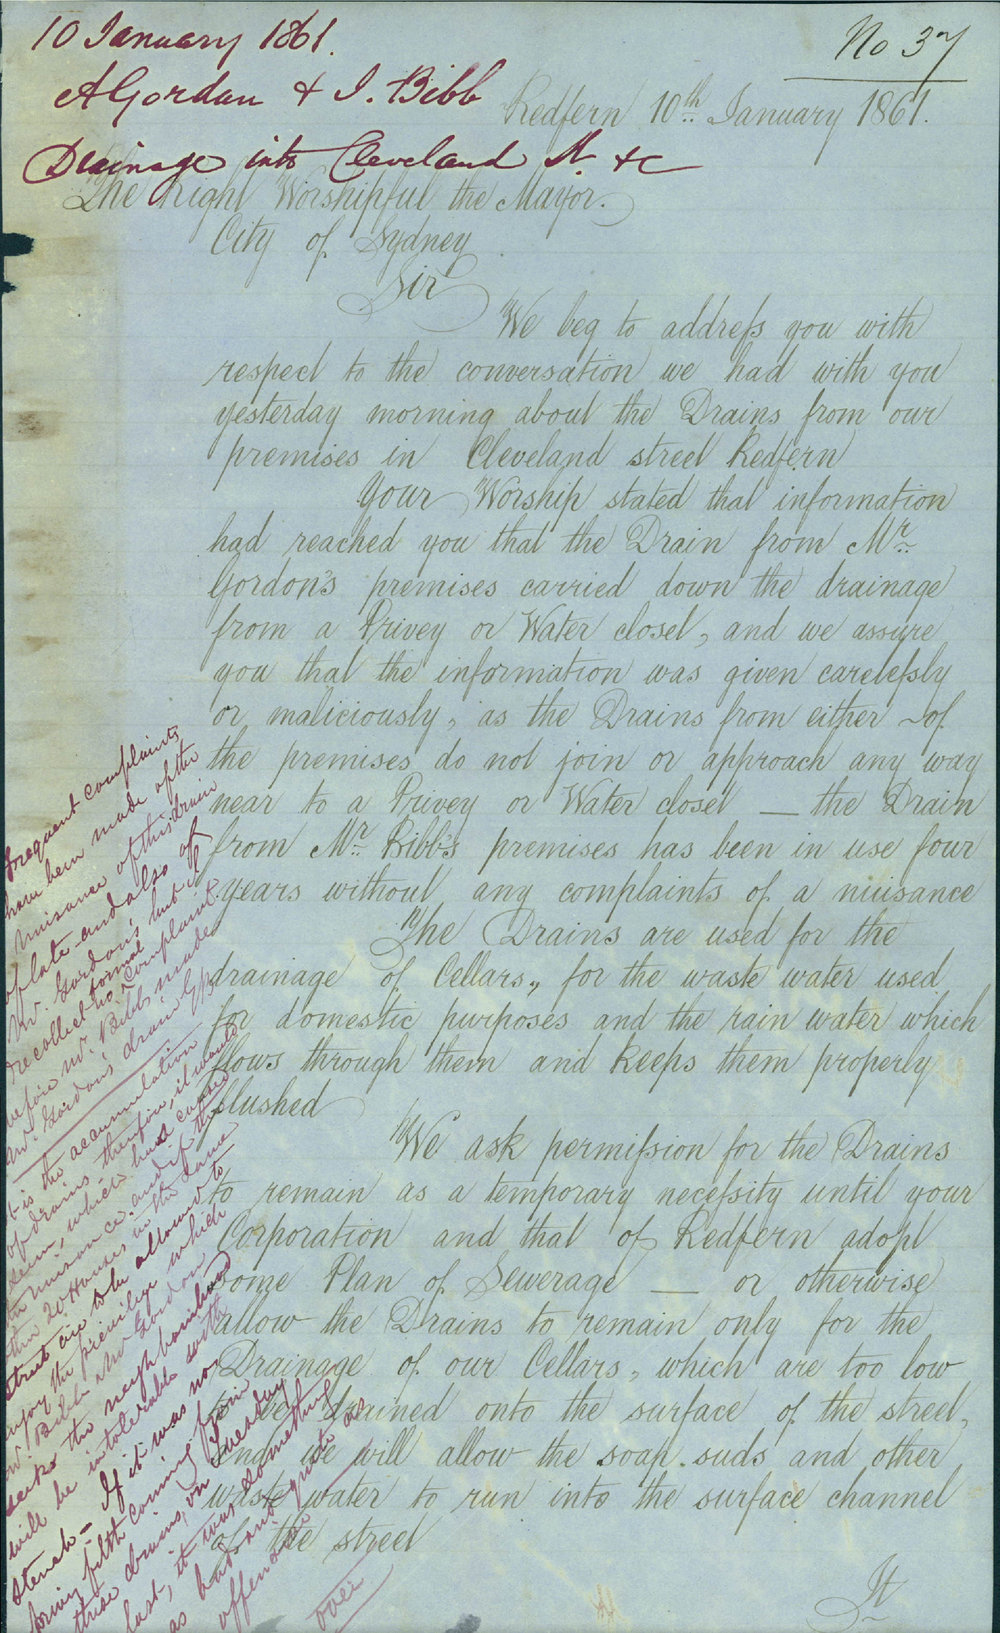 10 January 1861.
No 37
A Gordon & J. Bibb
Redfern 10th January 1861.
Drainage into Cleveland St. &c
The Right Worshipful the Mayor.
City of Sydney
Sir
We beg to address you with
respect to the conversation we had with you
yesterday morning about the Drains from our
premises in Cleveland street Redfern
Your Worship stated that information
had reached you that the Drain from Mr.
Gordon's premises carried down the drainage
from a Privey or Water closet, and we assure
you that the information was given carelessly
or maliciously, as the Drains from either of
the premises do not join or approach any way
near to a Privey or Water closet — the Drain
from Mr. Bibb's premises has been in use four
years without any complaints of a nuisance
The Drains are used for the
drainage of Cellars, for the waste water used
for domestic purposes and the rain water which
flows through them and keeps them properly
flushed
We ask permission for the Drains
to remain as a temporary necessity until your
Corporation and that of Redfern adopt
some Plan of Sewerage — or otherwise
allow the Drains to remain only for the
Drainage of our Cellars, which are too low
to be drained onto the surface of the street,
and we will allow the soap suds and other
waste water to run into the surface channel
of the street
It
frequent complaints
have been made of the
nuisance of this drain
of late and also of
Mr. Gordon's but I
recollect no formal complaint
before Mr. Bibb made
Mr. Gordon's drain
It is the accumulation
of drains therefore, it wants
which has caused
the nuisance and if the
other 20 Houses in the same
street are to be allowed to
enjoy the privilege which
Mr Bibb & Mr Gordon
seeks the neighbourhood
will be intolerable with
stench — If it was not
filth coming from
these drains, on Tuesday
last, it was something
as bad and quite as
offensive
over